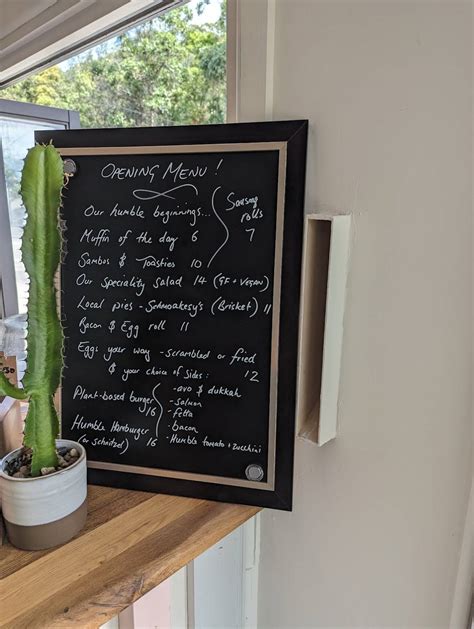 OPENING MENU!
Our humble beginnings...
Muffin of the day 6
Sambos & Toasties 10
Sausag
rolls
7
Our Speciality salad 14 (GF + VEGAN)
Local pies - Schmoakesy's (Brisket) 11
Bacon & Egg roll 11
Eggs your way - scrambled or fried
& your choice of sides: 12
- avo & dukkah
- salmon
- fetta
- bacon
- Humble tomato + zucchini
Plant-based burger
16
Humble Hamburger
(or schnitzel) 16